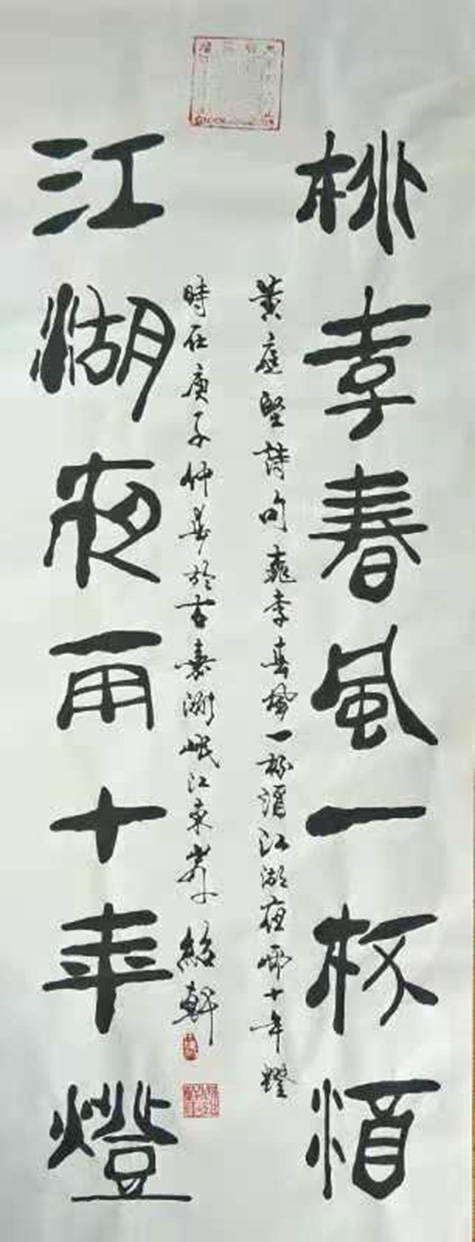 桃李春風一杯酒
黃庭堅詩句桃李春風一杯酒江湖夜雨十年燈
時在庚子仲夏於古嘉州岷江東岸 紹軒
江湖夜雨十年燈